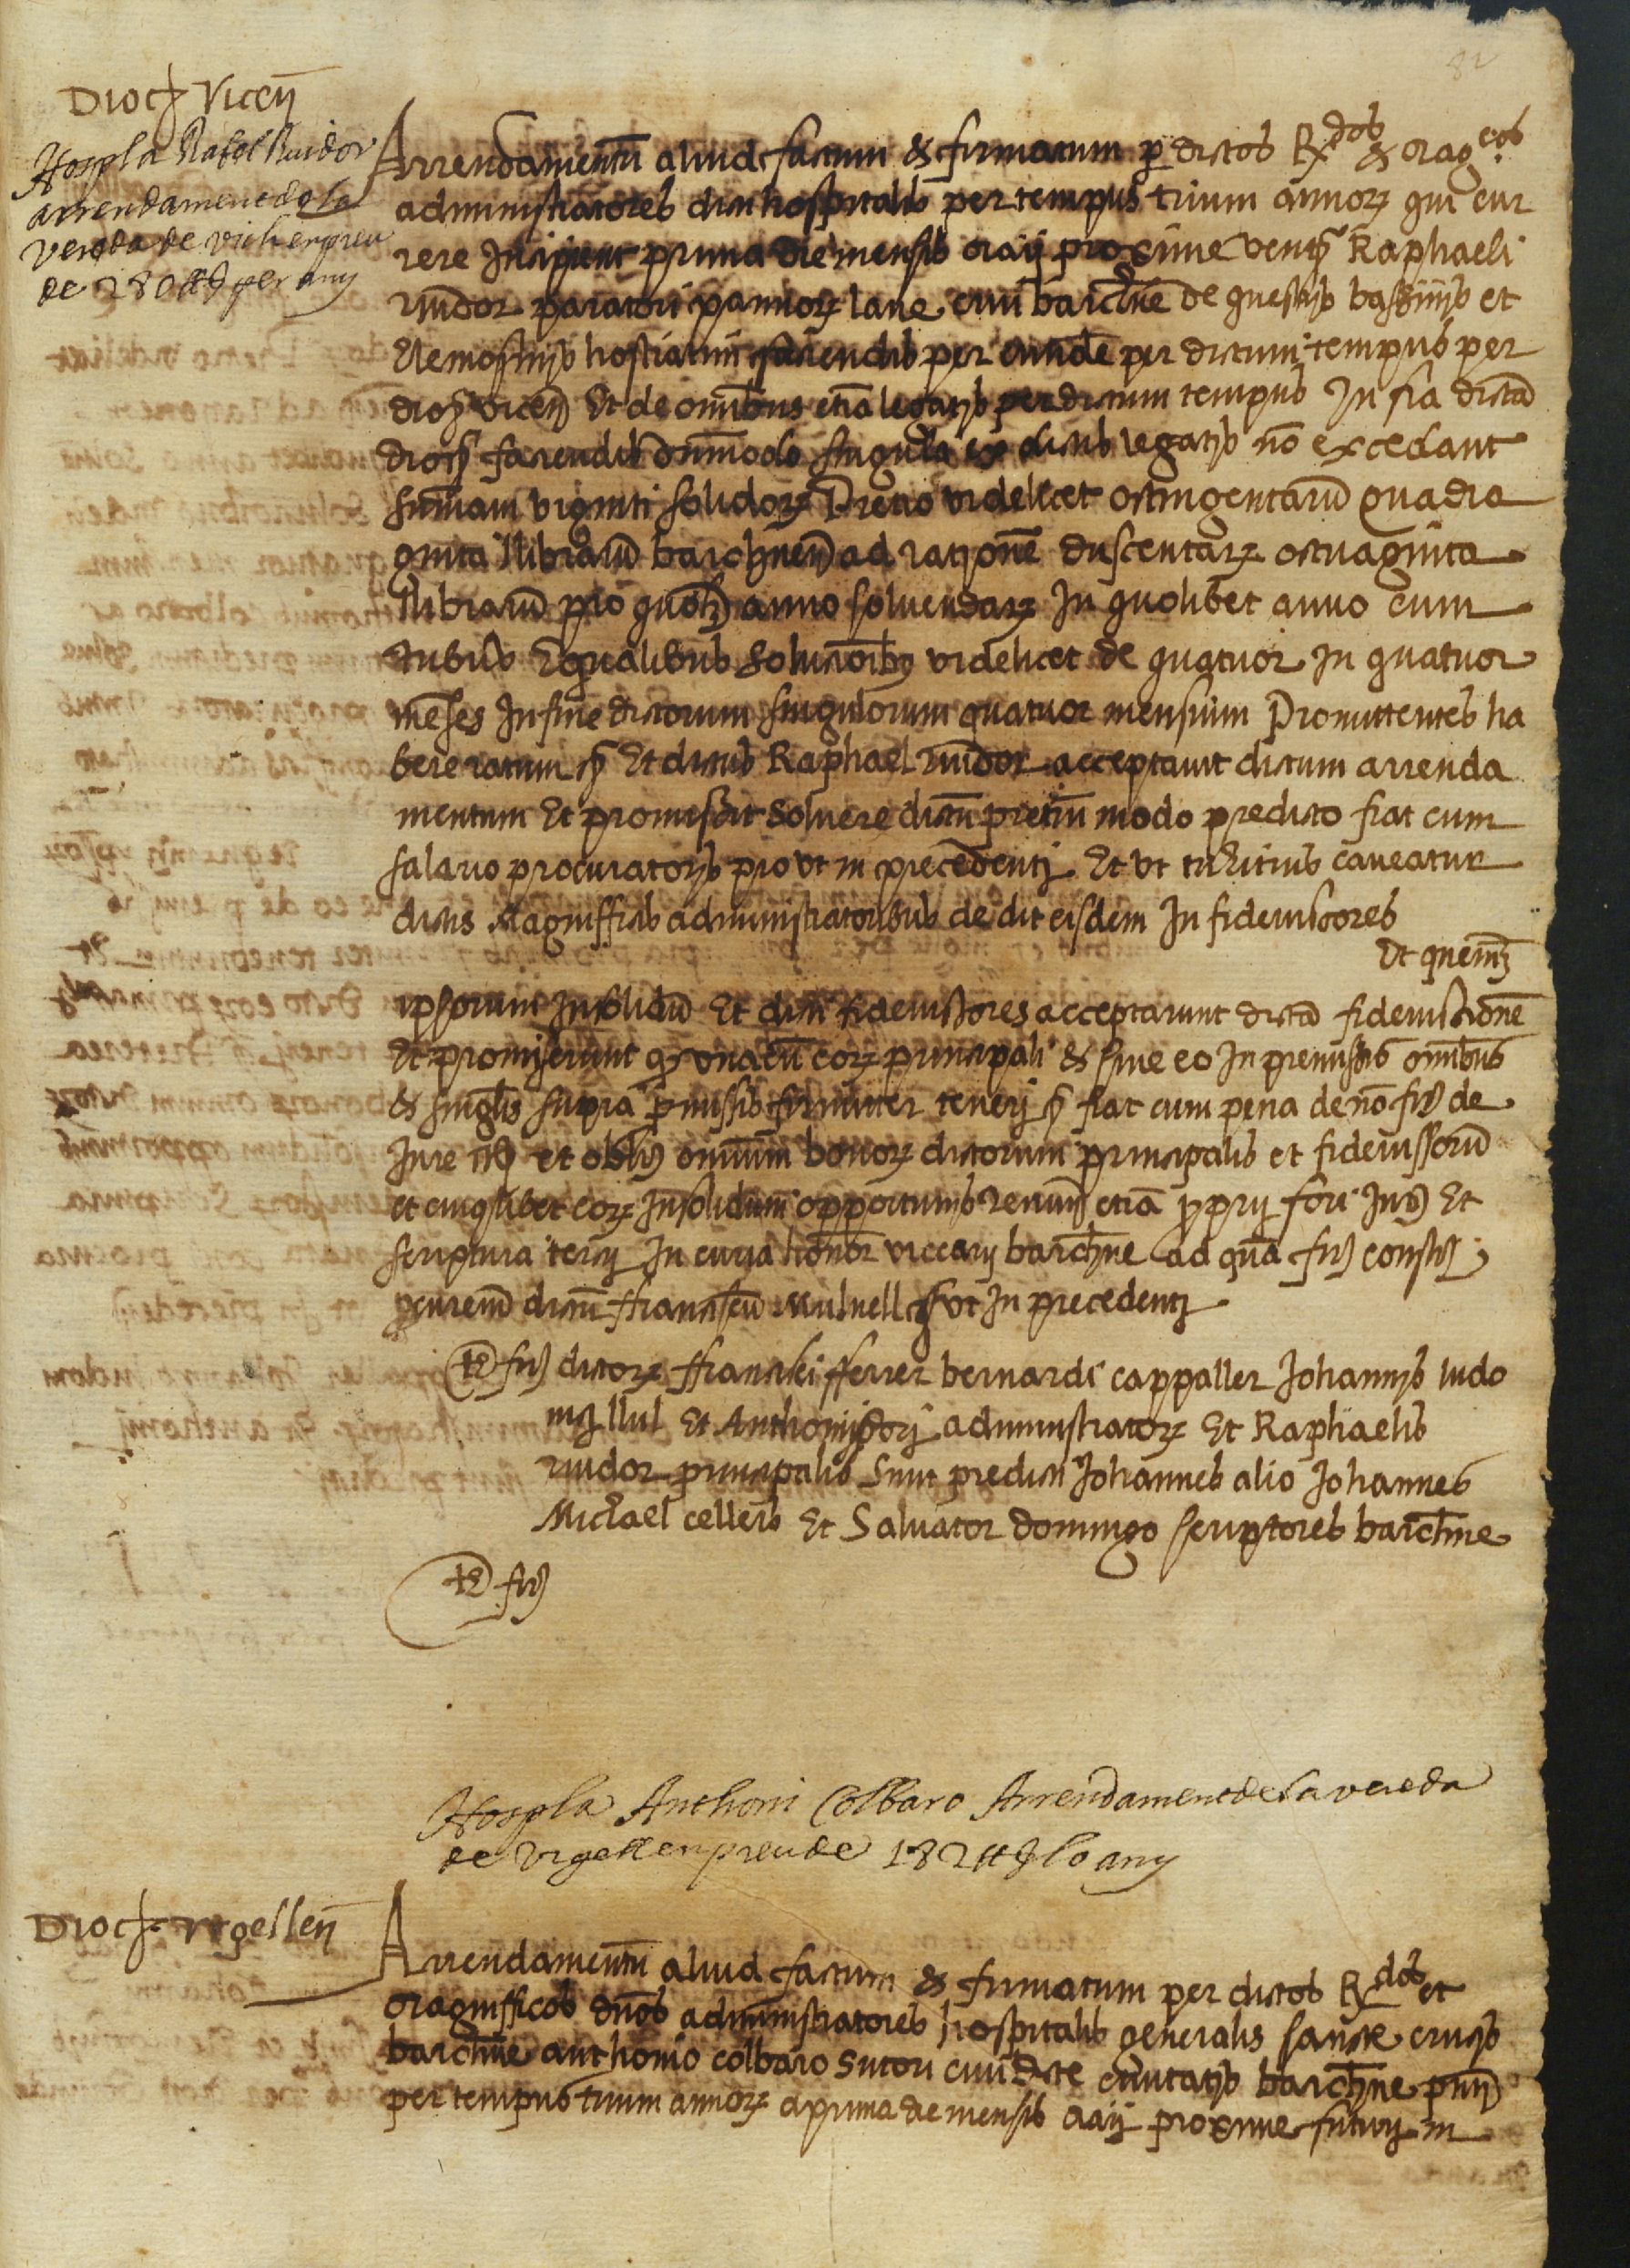 82
Dioc. Vicen
Hospla Rafel Ruidor
arrendament de la
vereda de vich en preu
de 280 ll per any
Arrendamentu aliud factum & firmatum p dictos Rdos & Magcos
administratores dicti hospitalis per tempus trium annor qui cur
rere Incipient prima die mensis Maij proxime vent Raphaeli
ruidor paratori pannor lane civi barchne de questijs bassinijs et
Elemosinijs hostiatim fariendis per eunde per dictum tempus per
dioc vicen Et de omnibus etia legatijs per dictum tempus Infra dicta
dioc fariendis dummodo singula ex dictis legatijs no excedant
summam viginti solidor Pretio videlicet octingentaru quadra
ginta llibraru barchnen ad ratione duscentar octuaginta
llibraru pro quolz anno solvendar In quolibet anno cum
tribus Equalibus Solucoibs videlicet de quatuor in quatuor
meses In fine dictorum singulorum quatuor mensium Promittentes ha
bere ratum & Et dictus Raphael ruidor acceptavit dictum arrenda
mentum Et promissit Solvere dictu pretiu modo predicto fiat cum
salario procuratorijs pro ut in precedentj Et ut tutitius caveatur
dictis Magniffisis administratoribus dedit eisdem In fideiussores
Et quemlz
ipsorum Insolidu Et dicti fideiussores acceptarunt dicta fideiussione
Et promiserunt q una cu eor principali & sine eo In premissis omibus
& singlis supra pmissis firmiter tenerj & fiat cum pena de no fir de
Jure & et oblig omnium bonor dictorum principalis et fideiussoru
et cuiqslibet eor Insolidum opportunis renun etia pprij fori Jur Et
scriptura tercij In curia honor viccarij barchne ad qua fir constit
pcurem dictu ffrancscu Mulnell & ut In precedentj
T fir dictor ffrancisci fferrer bernardi cappaller Johannis ludo
vicj llul Et Anthonij dorj administrator Et Raphaelis
ruidor principalis Sunt predicti Johannes alio Johannes
Michael cellers Et Salvator domingo scriptores barchne
T fir
Hospla Anthoni Colbaro Arrendament de la vereda
de Urgell en preu de 182 ll lo any
Dioc. Urgellen
Arrendamentu aliud factum & firmatum per dictos Rdos et
Magnifficos dnos administratores hospitalis generalis sancte crucijs
barchne anthonio colbaro sutori civi dicte civitatijs barchne pnti
per tempus trium annor a prima die mensis Maij proxime futurj in